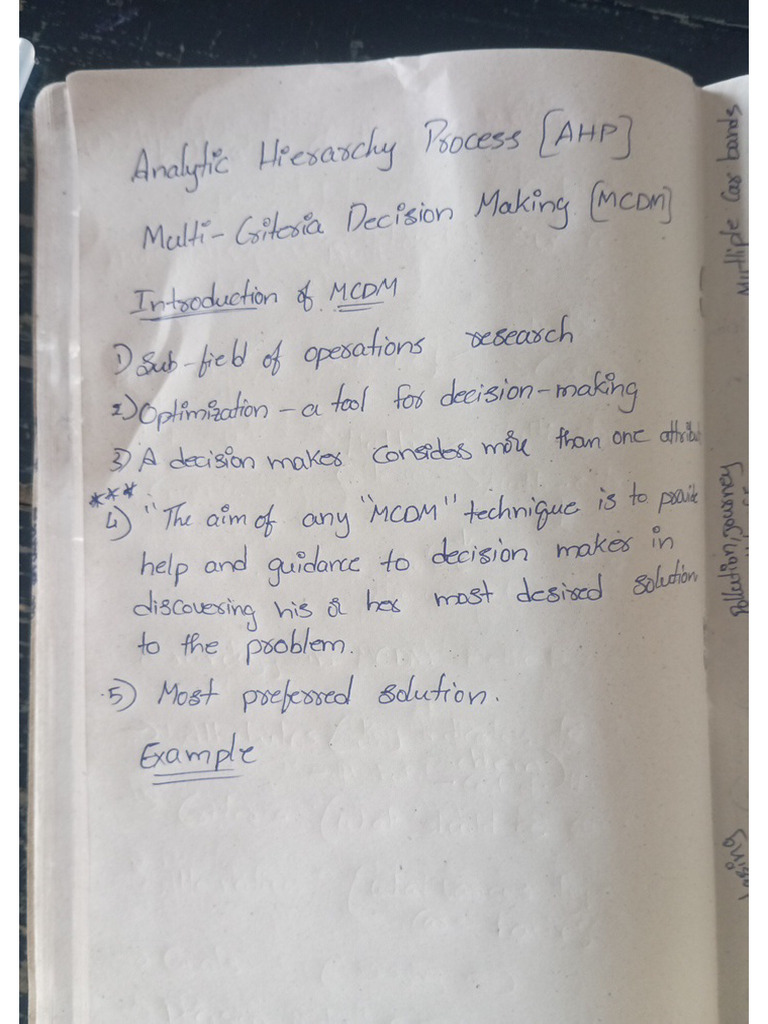 Analytic Hierarchy Process [AHP]
Multi-Criteria Decision Making [MCDM]
Introduction of MCDM
1) Sub-field of operations research
2) Optimization - a tool for decision-making
3) A decision maker considers more than one attribu
***
4) "The aim of any "MCDM" technique is to provide
help and guidance to decision maker in
discovering his or her most desired solution
to the problem.
5) Most preferred solution.
Example
Multiple Car bands
Pollution, journey